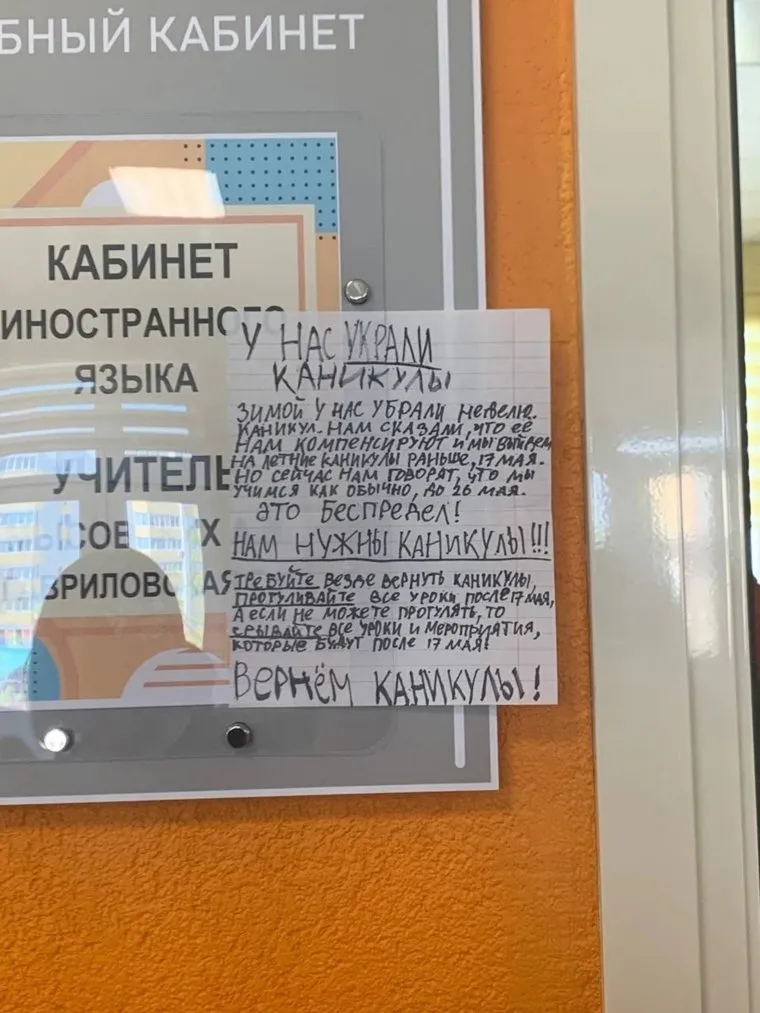 БНЫЙ КАБИНЕТ
КАБИНЕТ
ИНОСТРАННОГО
ЯЗЫКА
УЧИТЕЛЬ
У НАС УКРАЛИ
КАНИКУЛЫ
ЗИМОЙ У НАС УБРАЛИ НЕДЕЛЮ
КАНИКУЛ. НАМ СКАЗАЛИ, ЧТО ЕЁ
НАМ КОМПЕНСИРУЮТ И МЫ ВЫЙДЕМ
НА ЛЕТНИЕ КАНИКУЛЫ РАНЬШЕ, 17 МАЯ.
НО СЕЙЧАС НАМ ГОВОРЯТ, ЧТО МЫ
УЧИМСЯ КАК ОБЫЧНО, ДО 26 МАЯ.
ЭТО БЕСПРЕДЕЛ!
НАМ НУЖНЫ КАНИКУЛЫ!!!
ТРЕБУЙТЕ ВЕЗДЕ ВЕРНУТЬ КАНИКУЛЫ,
ПРОГУЛИВАЙТЕ ВСЕ УРОКИ ПОСЛЕ 17 МАЯ,
А ЕСЛИ НЕ МОЖЕТЕ ПРОГУЛЯТЬ, ТО
СРЫВАЙТЕ ВСЕ УРОКИ И МЕРОПРИЯТИЯ,
КОТОРЫЕ БУДУТ ПОСЛЕ 17 МАЯ!
ВЕРНЁМ КАНИКУЛЫ!